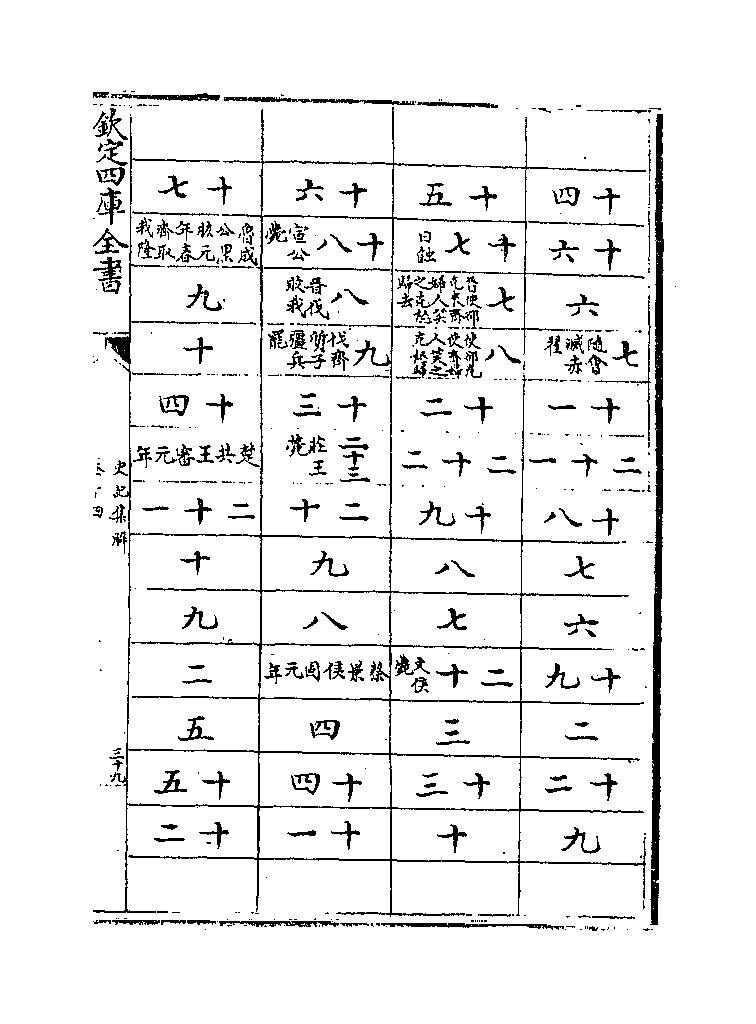 十四
十六
六
七 隨會滅赤翟
十一
二十一
十八
七
六
十九
二
十二
九
十五
十七 日蝕
七 晉使郤克來齊婦人笑之克怒歸去
八 使郤克使齊婦人笑之克怒歸
十二
二十二
十九
八
七
二十 文侯薨
三
十三
十
十六
十八 宣公薨
八 晉伐敗我
九 伐齊質子彊兵罷
十三
二十三 莊王薨
二十
九
八
蔡景侯固元年
四
十四
十一
十七
魯成公黑肱元年春齊取我隆
九
十
十四
楚共王審元年
二十一
十
九
二
五
十五
十二
欽定四庫全書
史記集解
卷十四
三十九